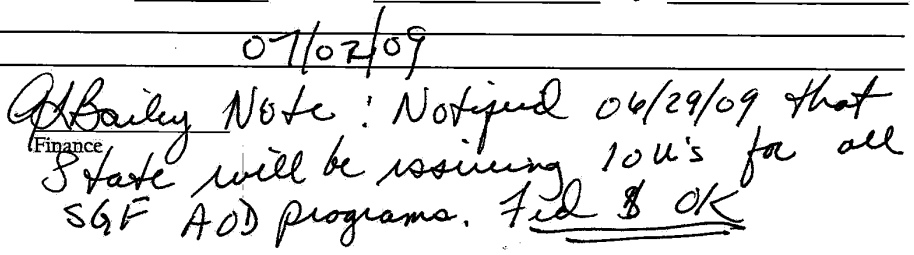 07/02/09
Bailey Note: Notified 06/29/09 that
Finance
State will be issuing IOU's for all
SGF AOD programs. Fed $ OK